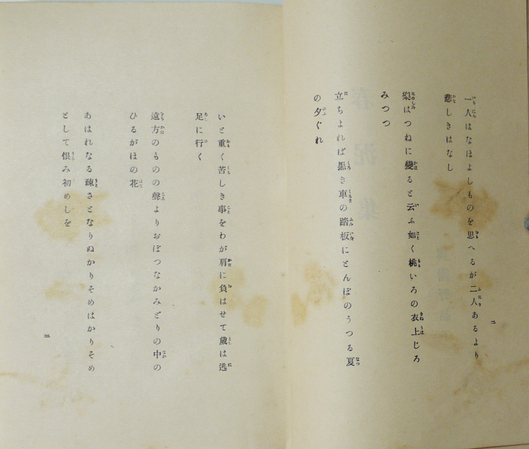 一人はなほよしものを思へるが二人あるより
悲しきはなし
髪はつねに變ると云ふ如く桃いろの衣上じろ
みつつ
立ちよれば黒き車の踏板にとんぼのうつる夏
の夕ぐれ
いと重く苦しき事をわが肩に負はせて歳は逃
足に行く
遠方のものの聲よりおぼつなかみどりの中の
ひるがほの花
あはれなる疎さとなりぬかりそめはかりそめ
として恨み初めしを